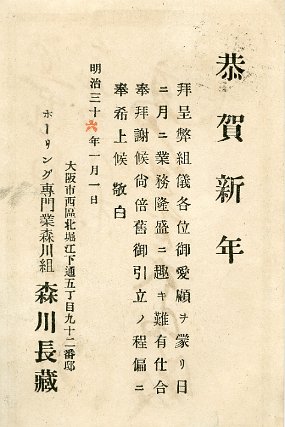 恭賀新年
拜呈弊組儀各位御愛顧ヲ蒙リ日
ニ月ニ業務隆盛ニ趣キ難有仕合
奉拜謝候尙倍舊御引立ノ程偏ニ
奉希上候 敬白
明治三十六年一月一日
大阪市西區北堀江下通五丁目九十二番邸
ホーリング專門業森川組 森川長藏